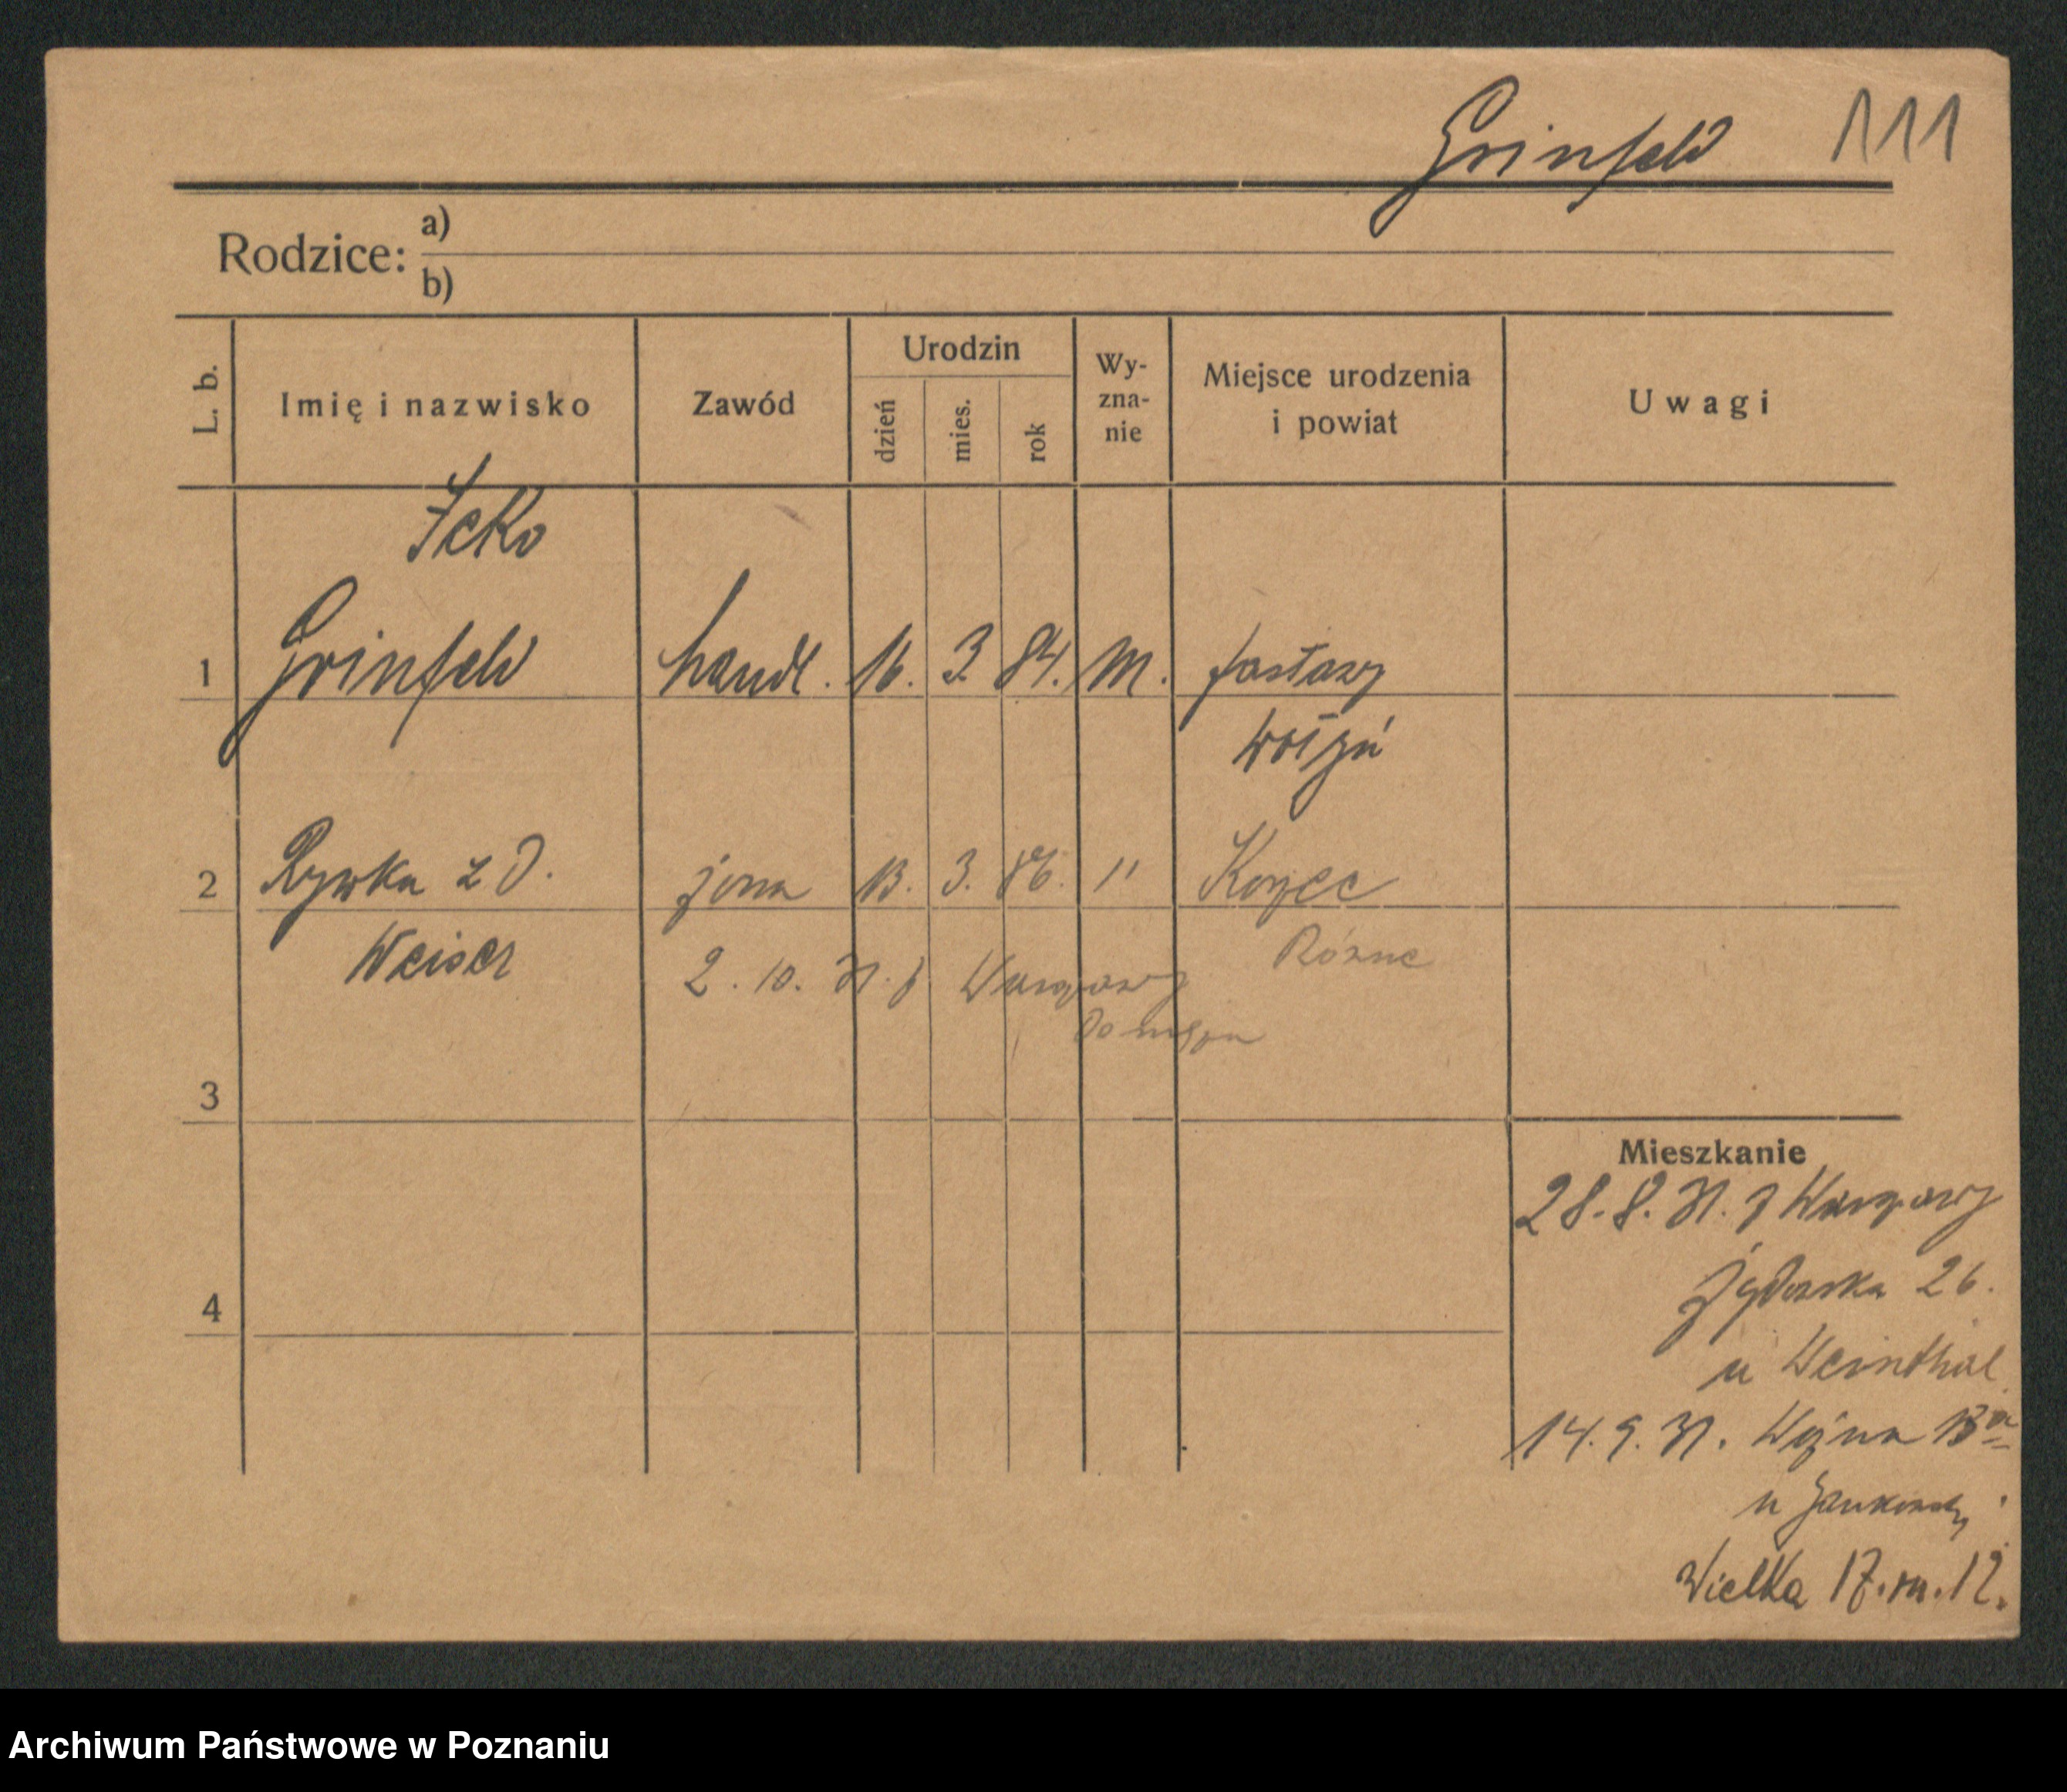 Grinfeld 111
Rodzice: a)
b)
L. b. Imię i nazwisko Zawód Urodzin dzień mies. rok Wyznanie Miejsce urodzenia i powiat Uwagi
Icko
1 Grinfeld handl. 16. 3. 84. m.
Wołyń
2 Rywka z d. żona 13. 3. 86. " Korzec
Weiser Równe
2. 10. 31. z Warszawy
do męża
3
Mieszkanie
28. 8. 31. z Warszawy
4 Żydowska 26.
u Weinthal
14. 9. 31. Woźna 13a
u
Wielka 17. m. 12.
Archiwum Państwowe w Poznaniu